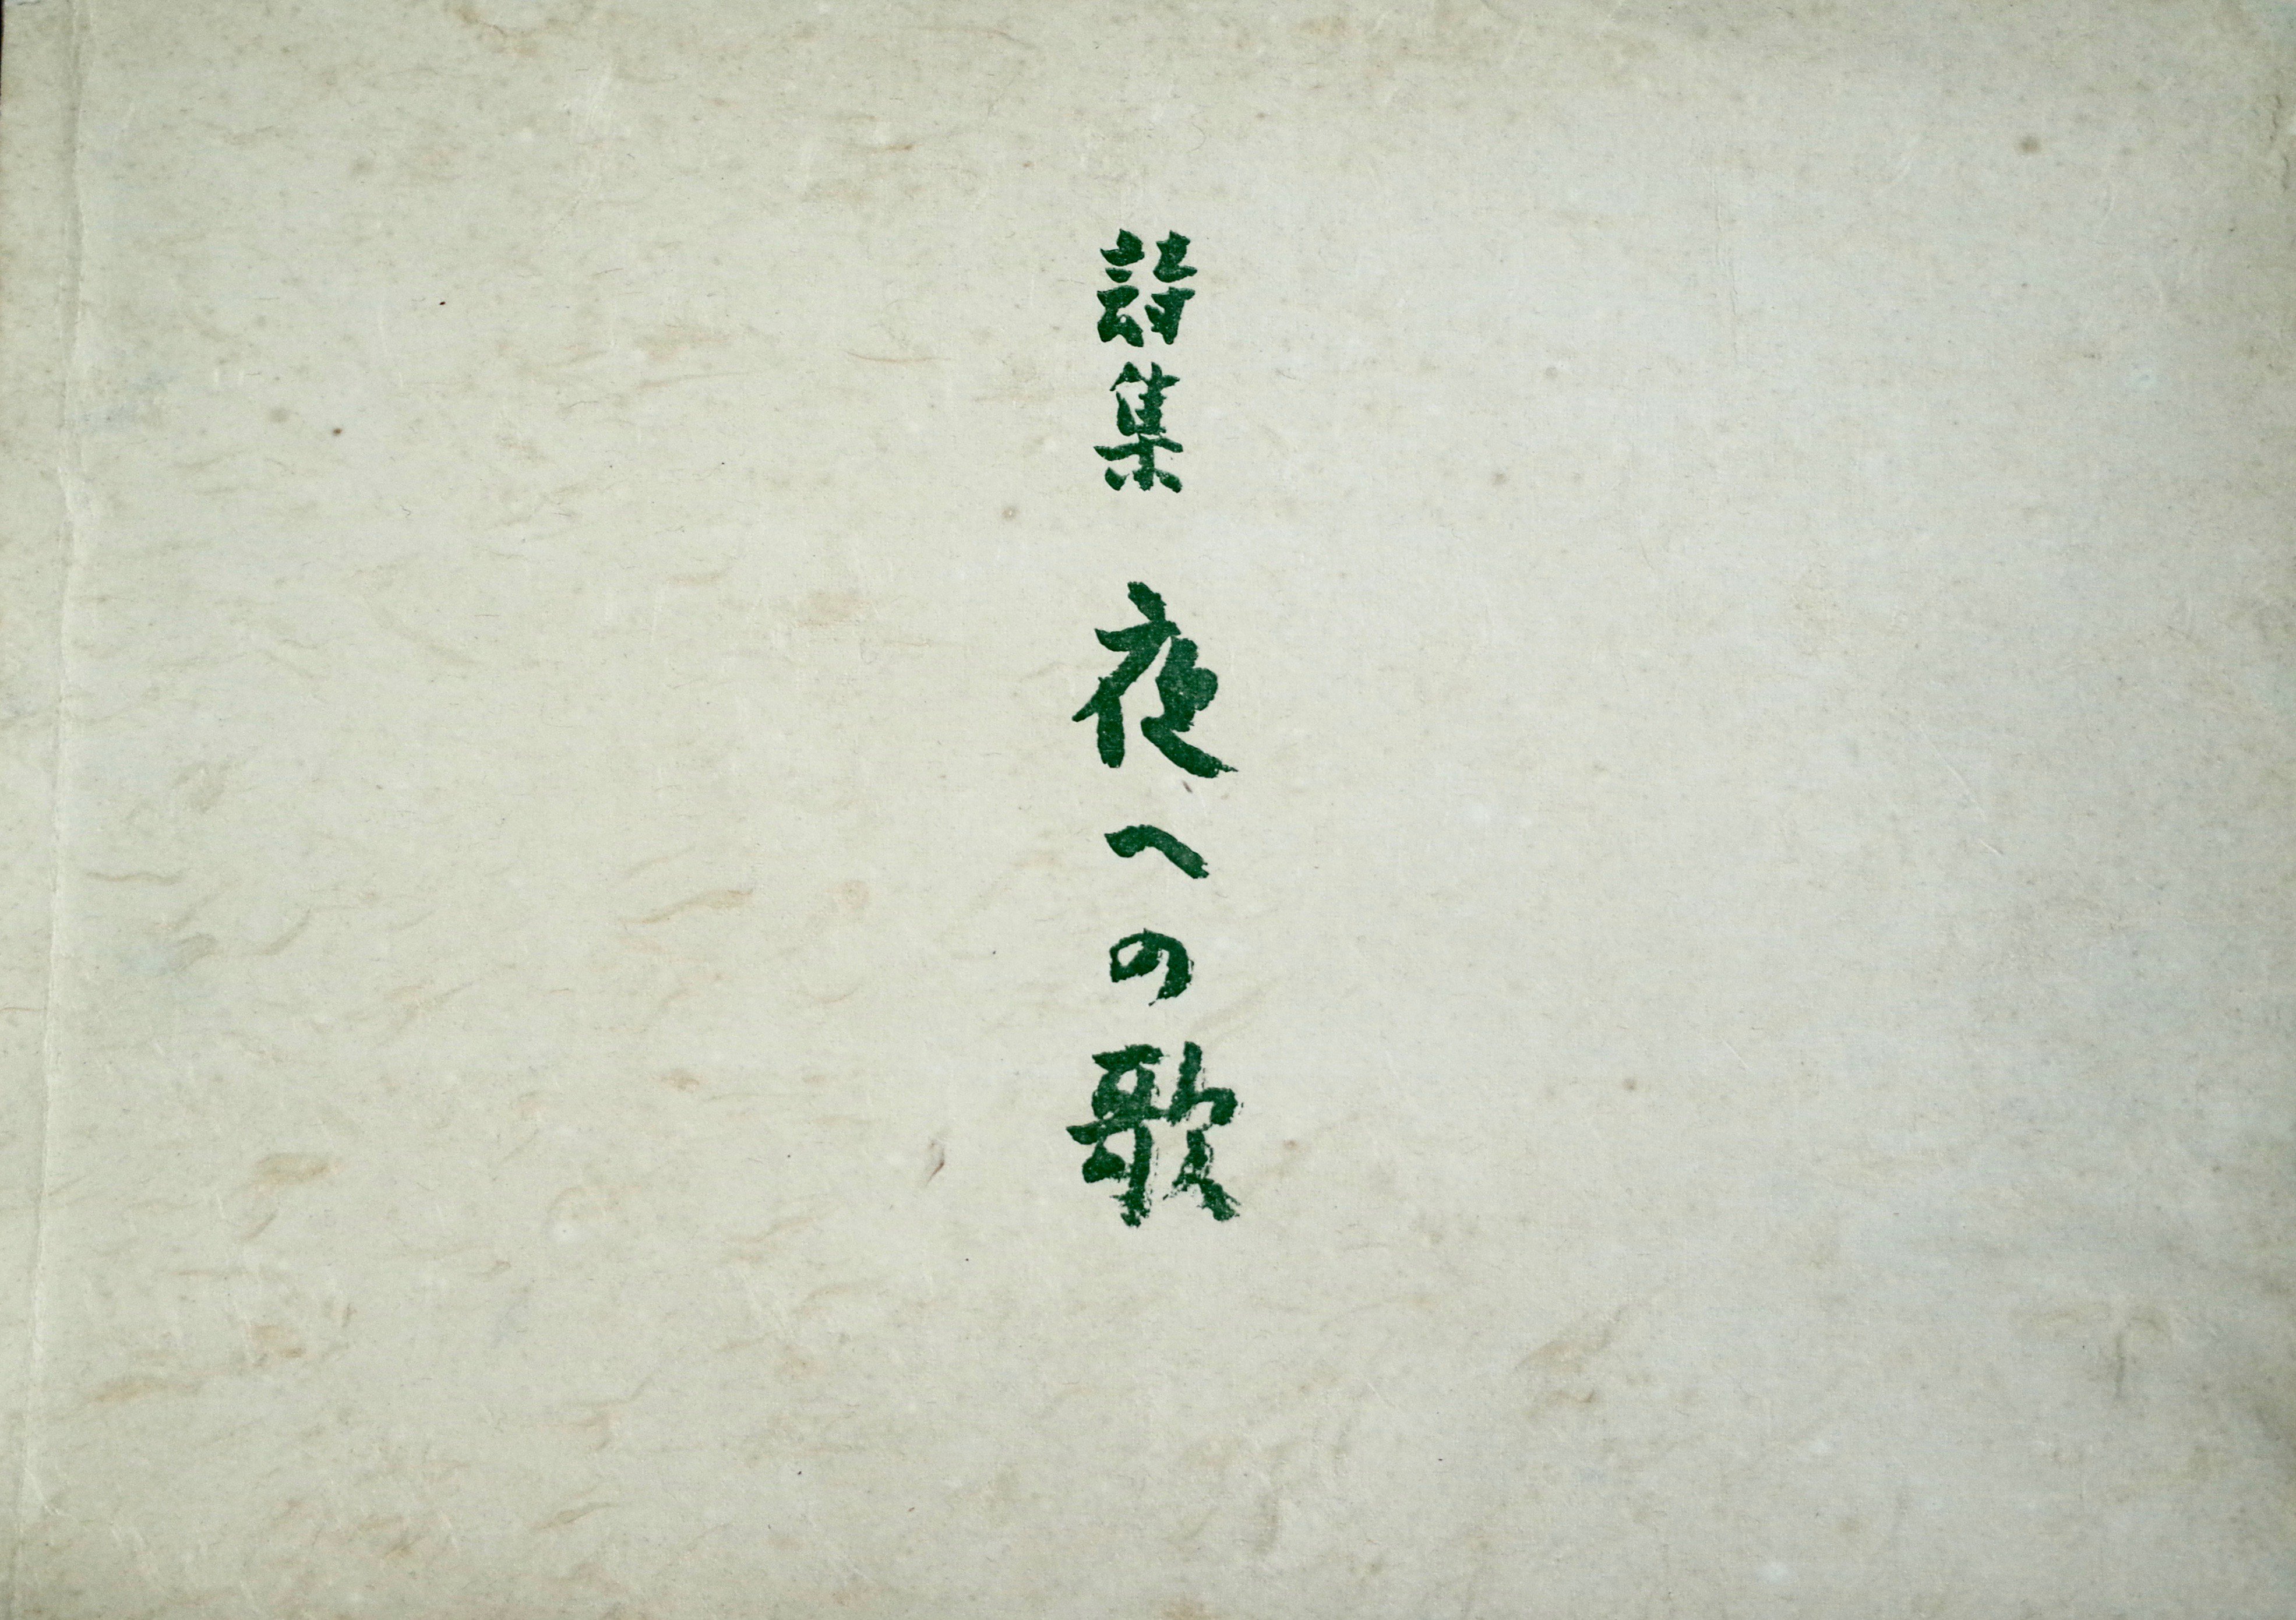 詩集 夜への歌